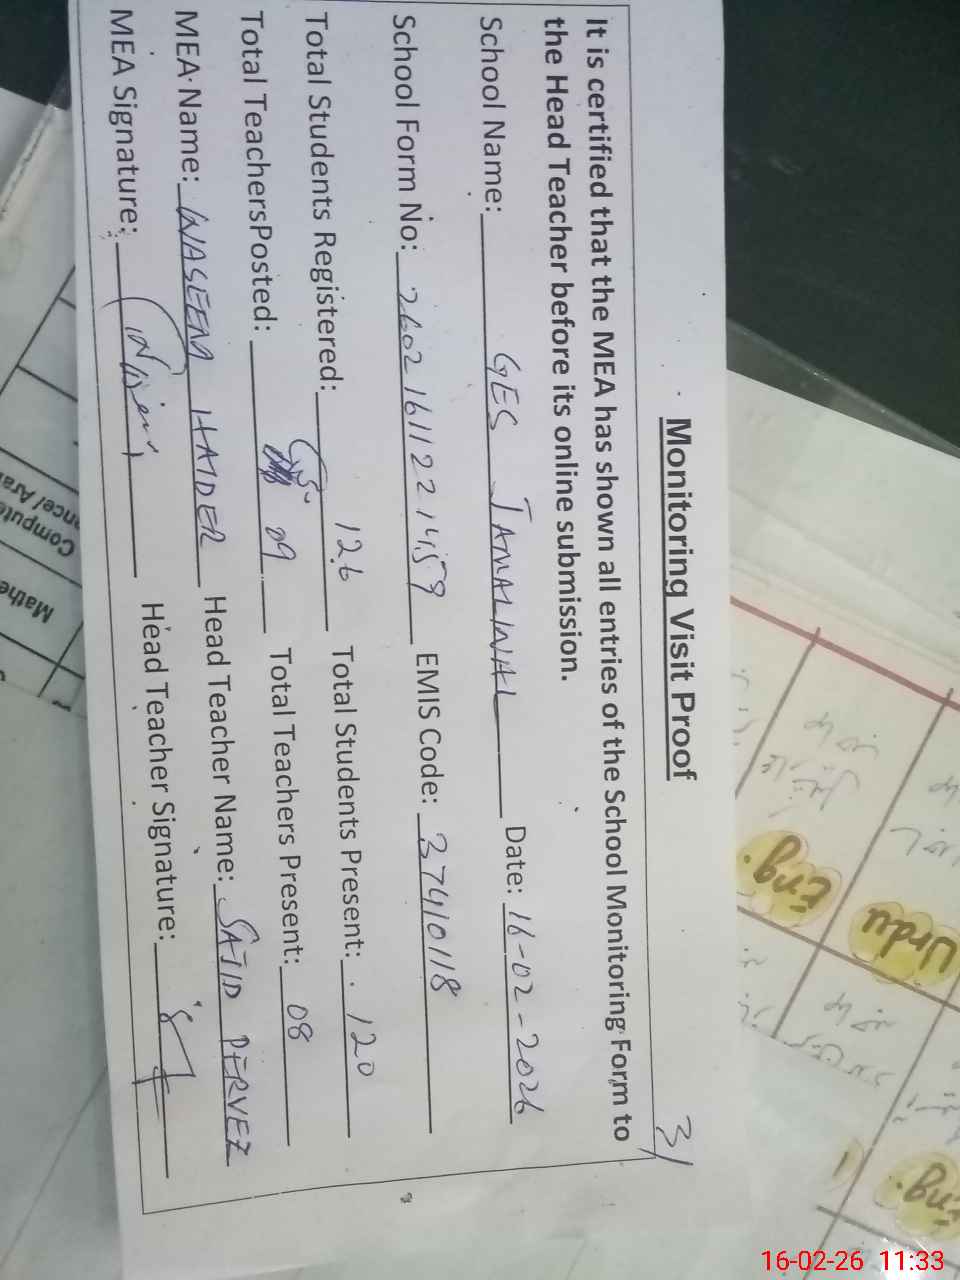 Monitoring Visit Proof
31
It is certified that the MEA has shown all entries of the School Monitoring Form to
the Head Teacher before its online submission.
School Name: GES JAMALWAL Date: 16-02-2026
School Form No: 26021611221459 EMIS Code: 37410118
Total Students Registered: 126 Total Students Present: 120
Total TeachersPosted: 09 Total Teachers Present: 08
MEA Name: WASEEM HAIDER Head Teacher Name: SAJID PERVEZ
MEA Signature: Head Teacher Signature:
Eng.
Urdu
Eng.
Compute
ence/ Arab
Mathe
16-02-26 11:33